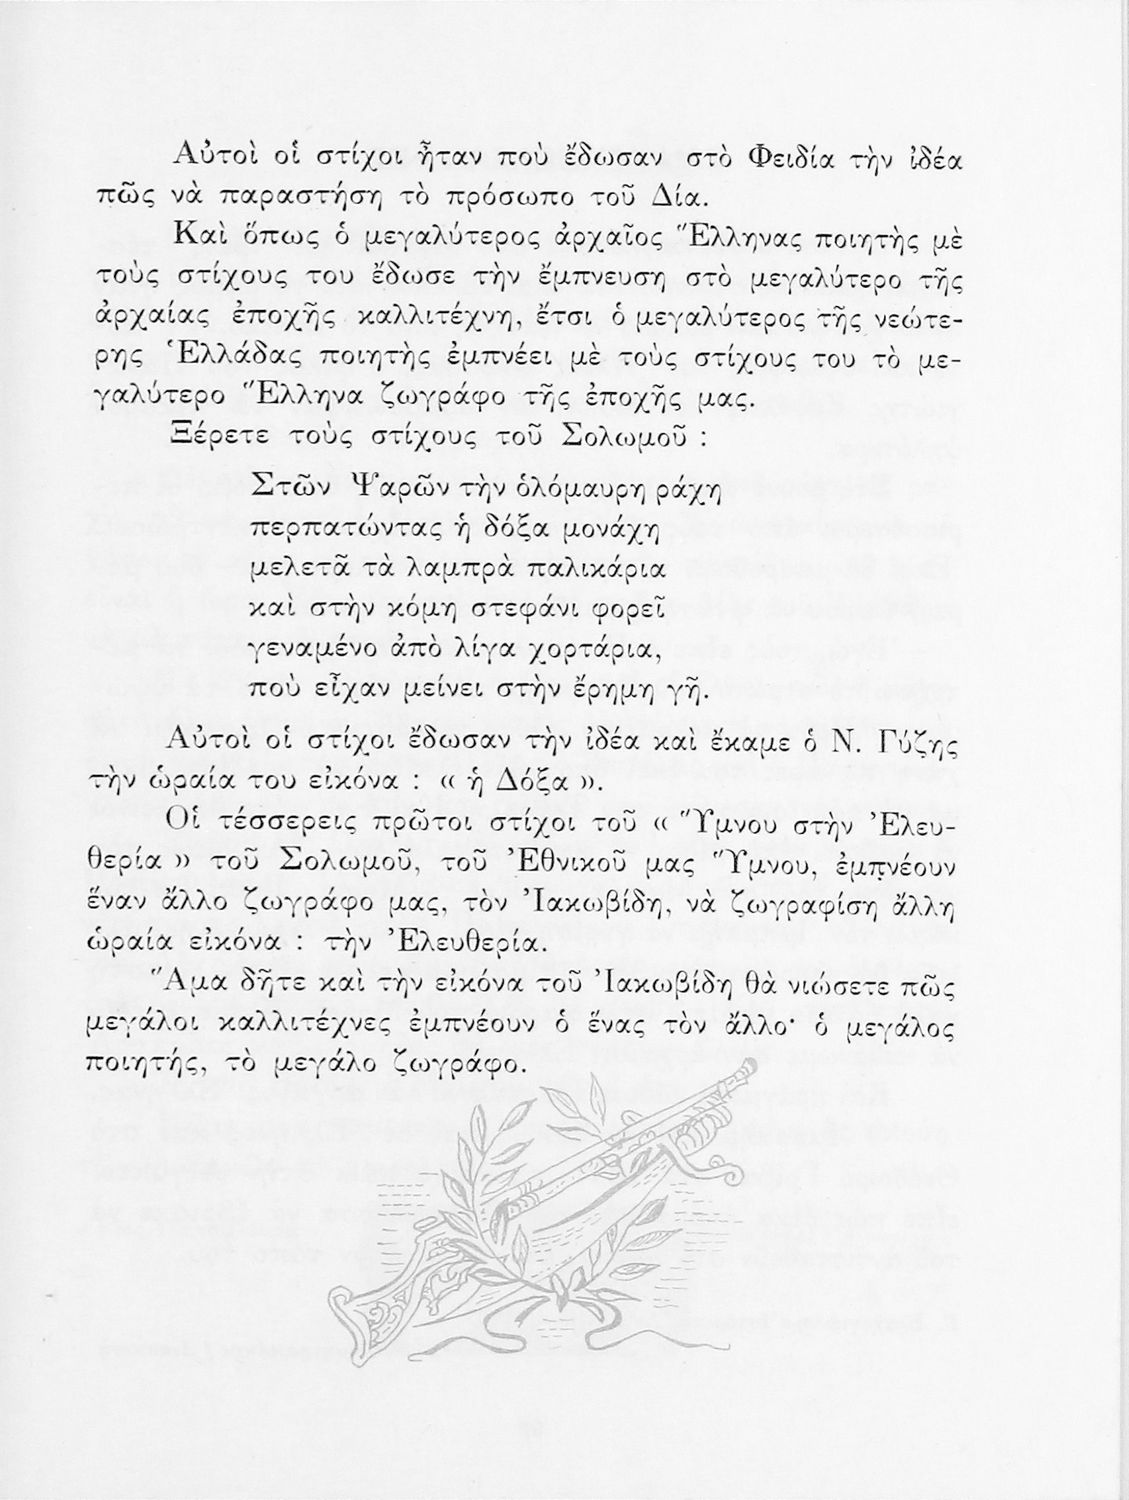 Αὐτοὶ οἱ στίχοι ἦταν ποὺ ἔδωσαν στὸ Φειδία τὴν ἰδέα
πῶς νὰ παραστήση τὸ πρόσωπο τοῦ Δία.
Καὶ ὅπως ὁ μεγαλύτερος ἀρχαῖος Ἕλληνας ποιητὴς μὲ
τοὺς στίχους του ἔδωσε τὴν ἔμπνευση στὸ μεγαλύτερο τῆς
ἀρχαίας ἐποχῆς καλλιτέχνη, ἔτσι ὁ μεγαλύτερος τῆς νεώτε-
ρης Ἑλλάδας ποιητὴς ἐμπνέει μὲ τοὺς στίχους του τὸ με-
γαλύτερο Ἕλληνα ζωγράφο τῆς ἐποχῆς μας.
Ξέρετε τοὺς στίχους τοῦ Σολωμοῦ :
Στῶν Ψαρῶν τὴν ὁλόμαυρη ράχη
περπατώντας ἡ δόξα μονάχη
μελετᾶ τὰ λαμπρὰ παλικάρια
καὶ στὴν κόμη στεφάνι φορεῖ
γεναμένο ἀπὸ λίγα χορτάρια,
ποὺ εἶχαν μείνει στὴν ἔρημη γῆ.
Αὐτοὶ οἱ στίχοι ἔδωσαν τὴν ἰδέα καὶ ἔκαμε ὁ Ν. Γύζης
τὴν ὡραία του εἰκόνα : « ἡ Δόξα ».
Οἱ τέσσερεις πρῶτοι στίχοι τοῦ « Ὕμνου στὴν Ἐλευ-
θερία » τοῦ Σολωμοῦ, τοῦ Ἐθνικοῦ μας Ὕμνου, ἐμπνέουν
ἕναν ἄλλο ζωγράφο μας, τὸν Ἰακωβίδη, νὰ ζωγραφίση ἄλλη
ὡραία εἰκόνα : τὴν Ἐλευθερία.
Ἅμα δῆτε καὶ τὴν εἰκόνα τοῦ Ἰακωβίδη θὰ νιώσετε πῶς
μεγάλοι καλλιτέχνες ἐμπνέουν ὁ ἕνας τὸν ἄλλο· ὁ μεγάλος
ποιητής, τὸ μεγάλο ζωγράφο.